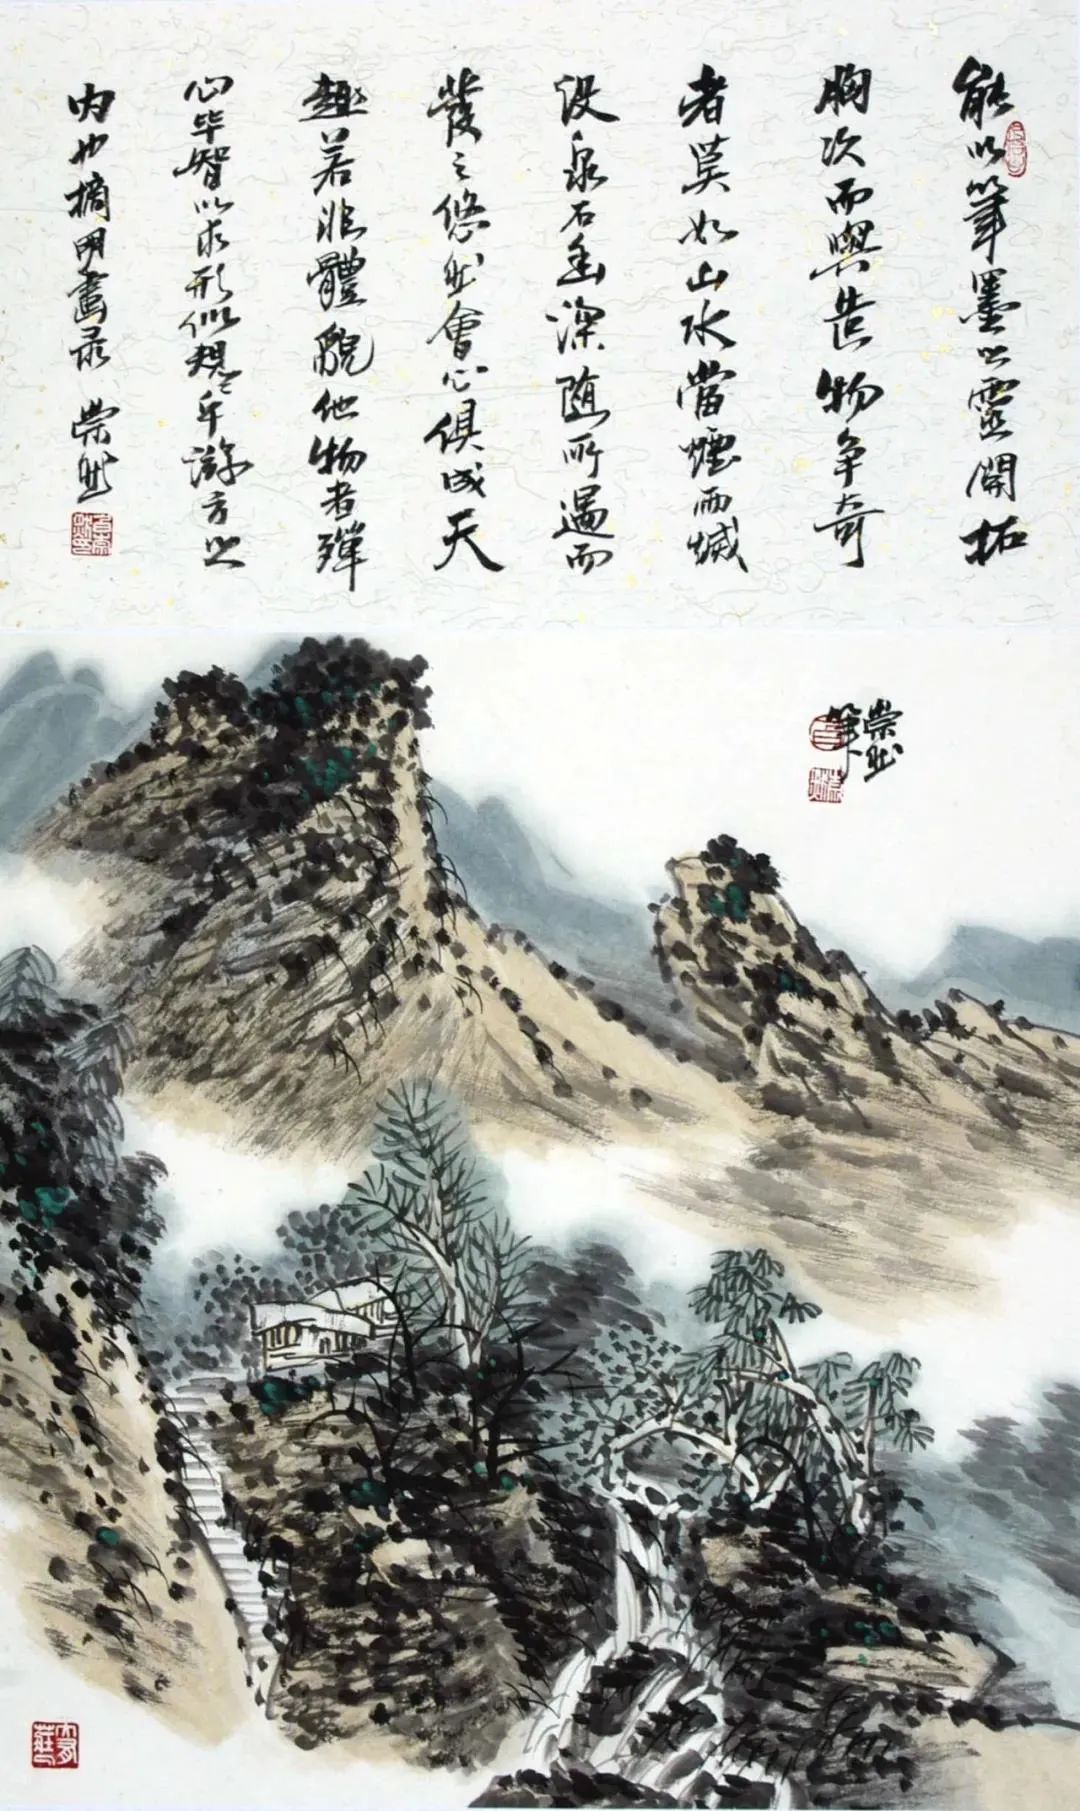 能以筆墨之靈開拓
胸次而與造物争奇
者莫如山水當煙雨滅
没泉石幽深随所遇而
發之悠然會心俱成天
趣若非體貌他物者殫
心毕智以求形似規乎游方之
内也摘明畫录 崇然
崇然
筆